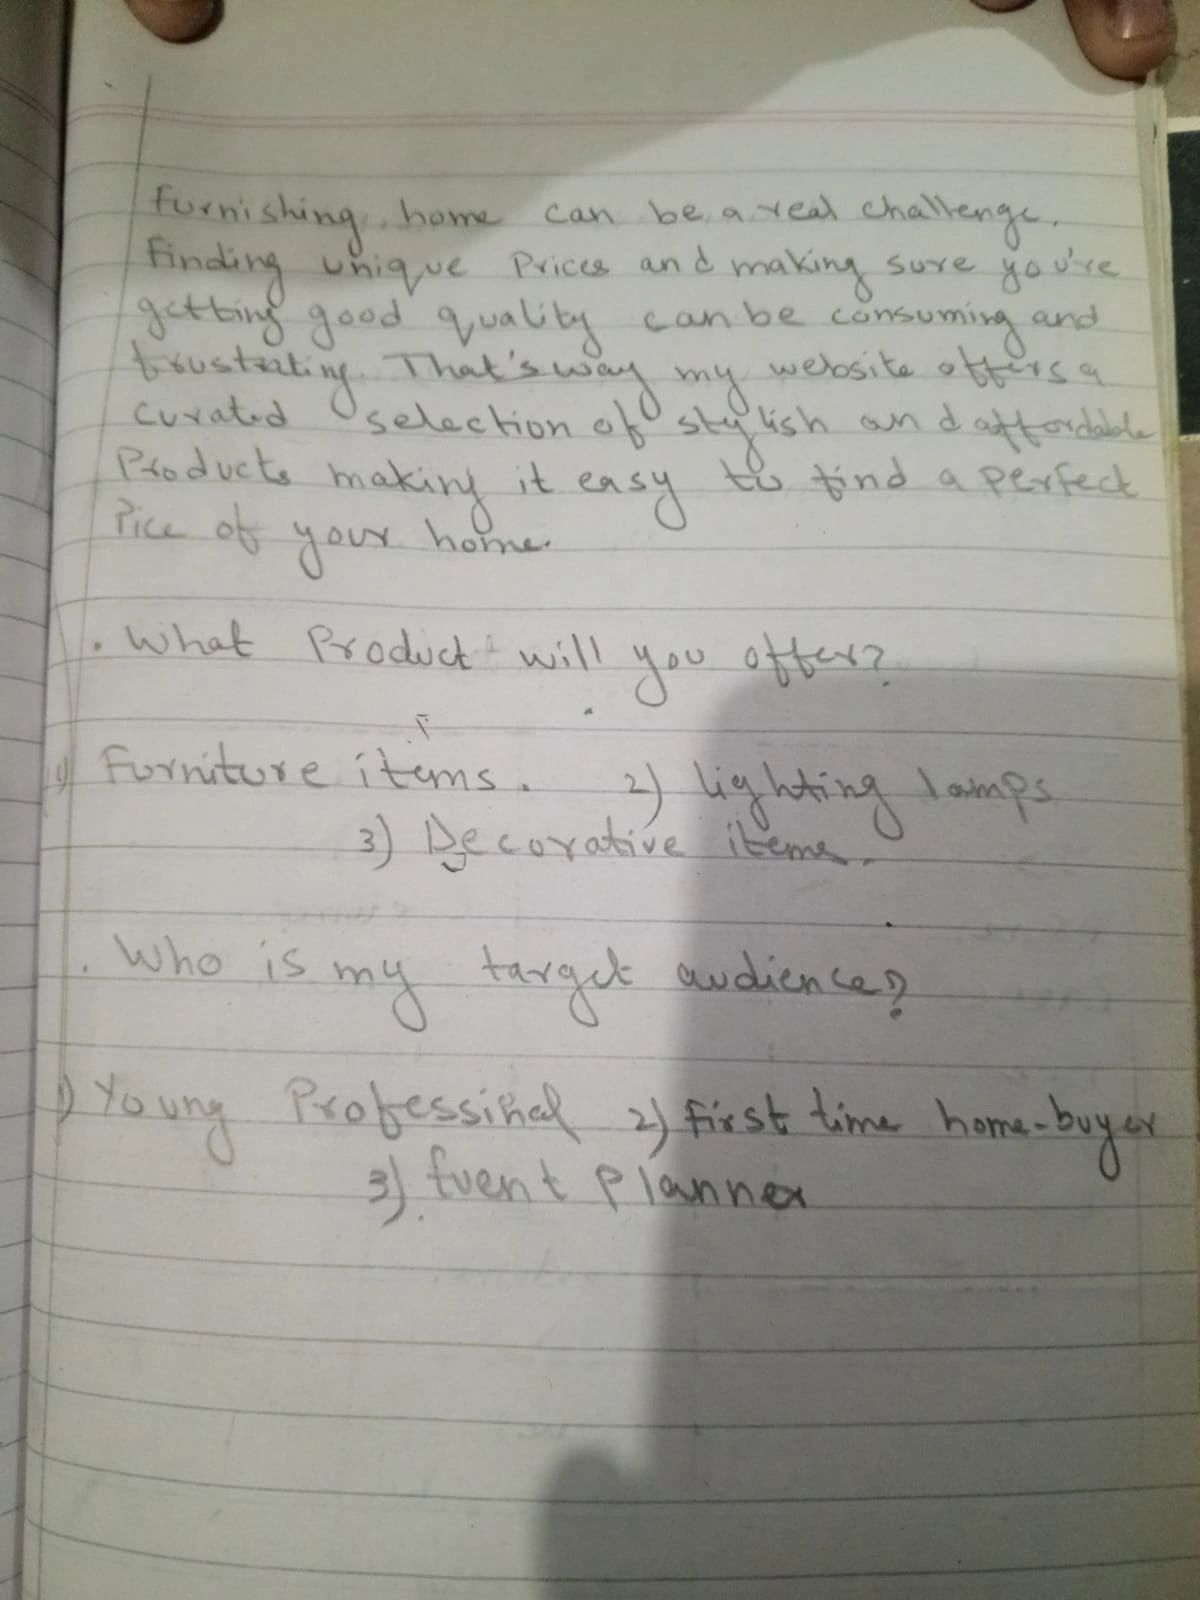 Furnishing home can be a real challenge.
Finding unique Prices and making sure you're
getting good quality can be consuming and
frustrating. That's way my website offers a
curated selection of stylish and affordable
Products making it easy to find a perfect
Pice of your home.
. What Product will you offer?
1) Furniture items. 2) lighting lamps
3) Decorative items.
. Who is my target audience?
1) Young Professinal 2) First time home-buyer
3) Event Planner